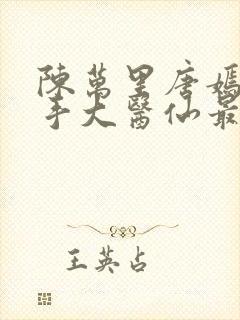 陳萬里唐嫣
手大醫仙最
王英占